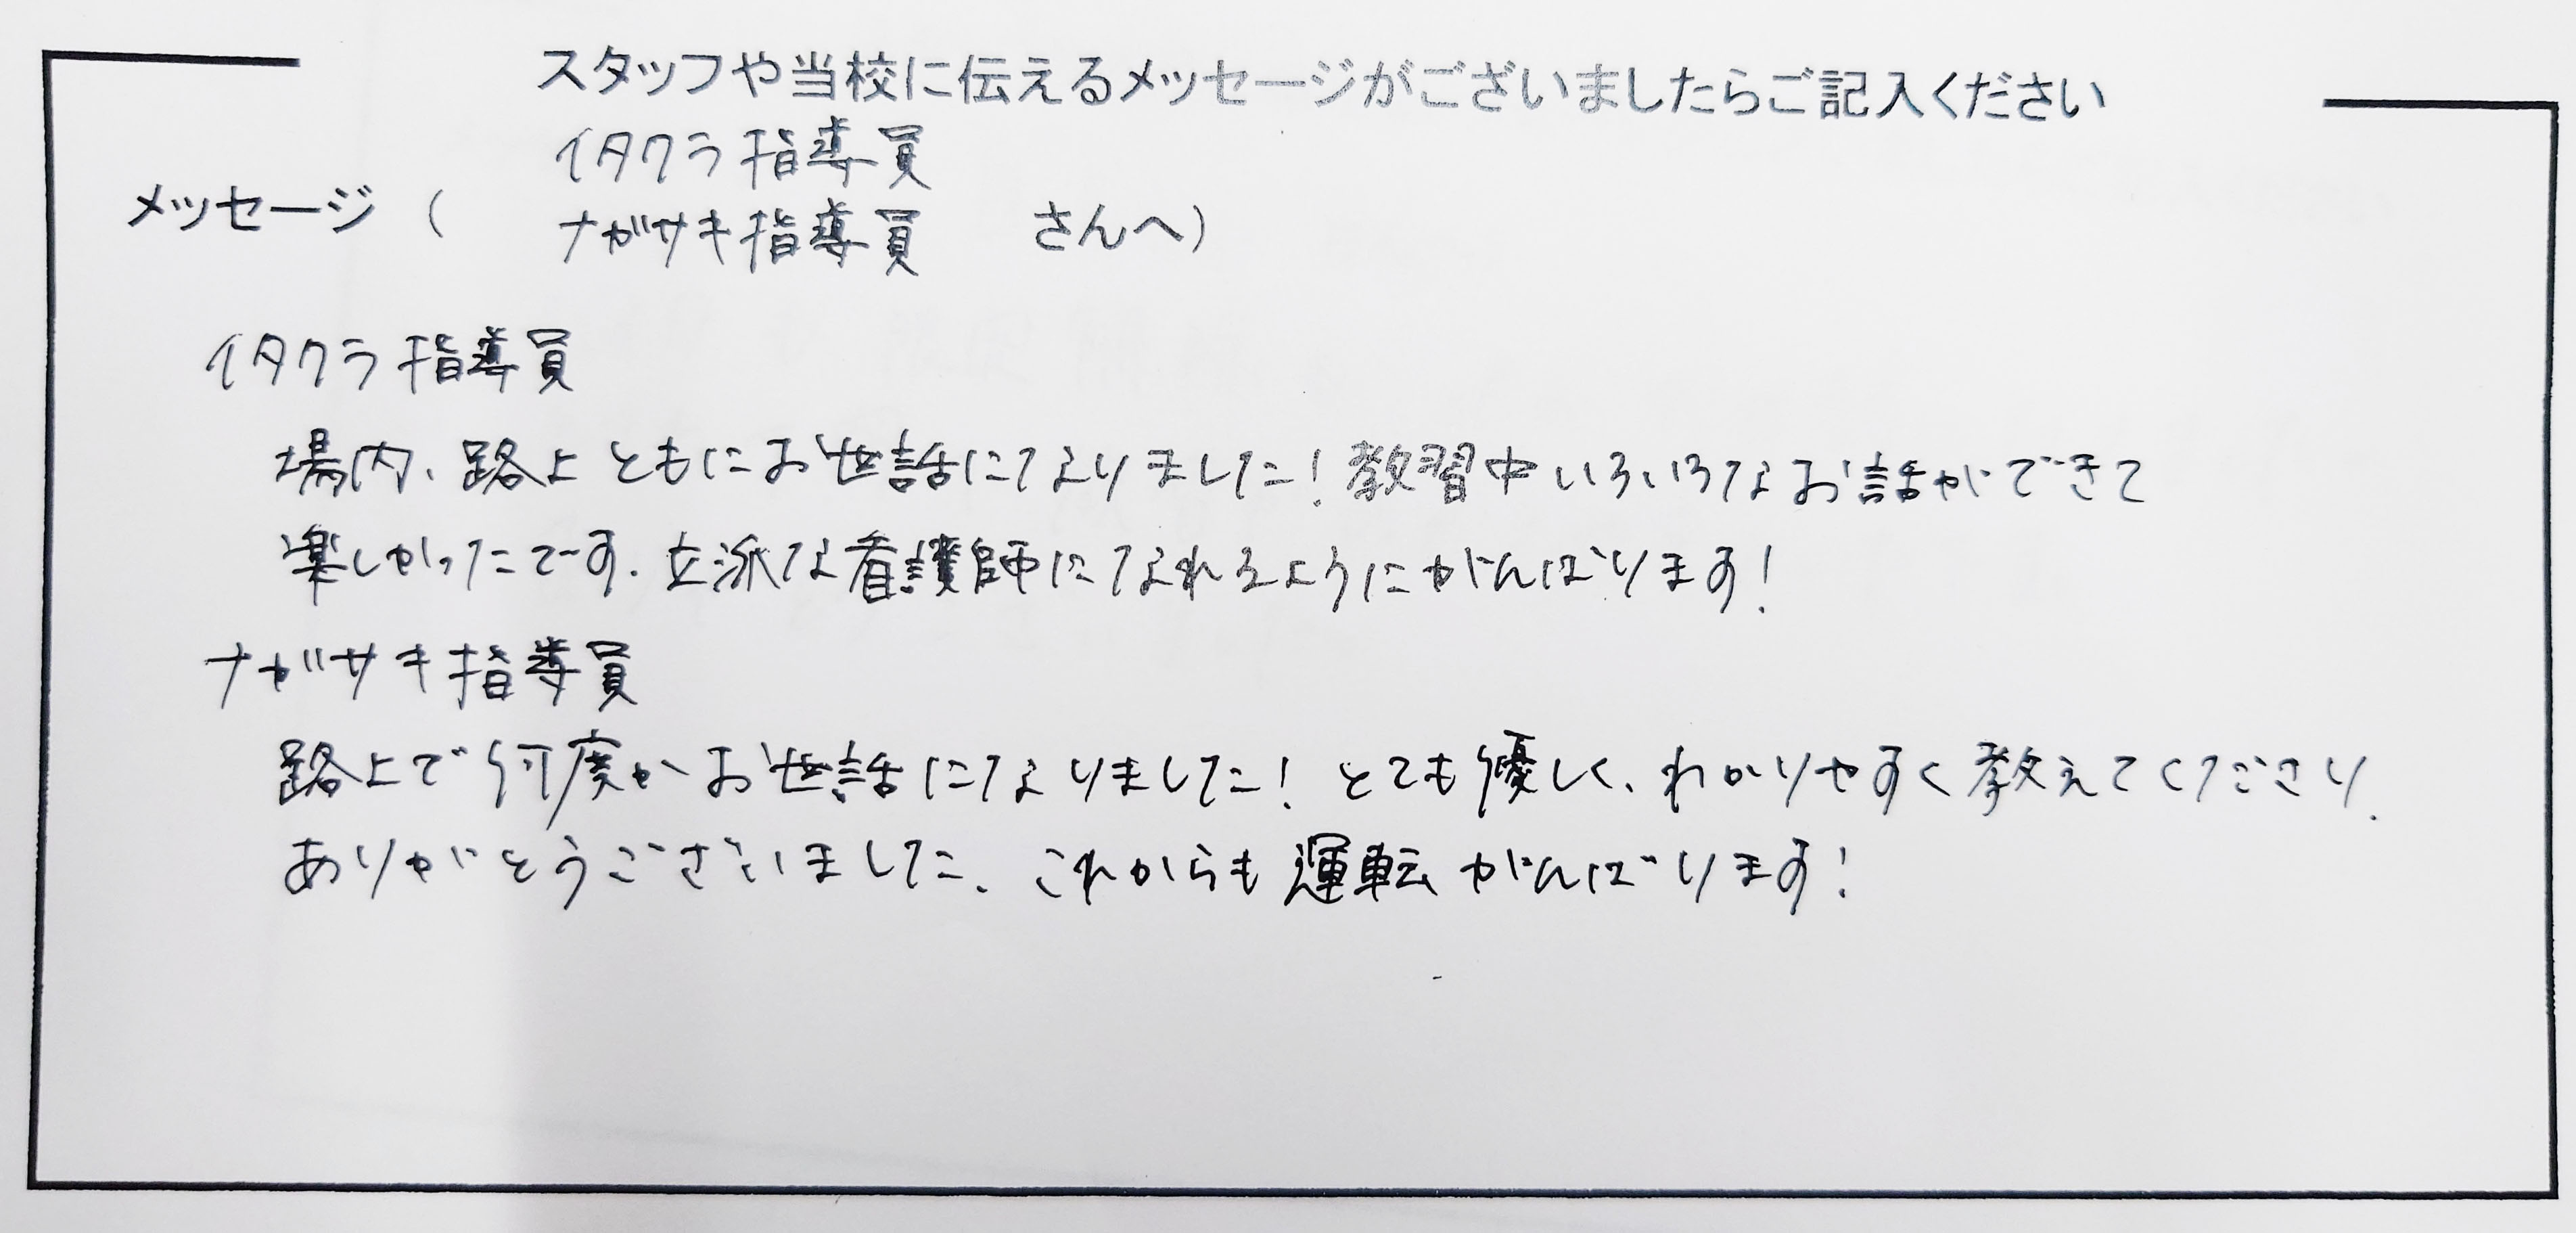 スタッフや当校に伝えるメッセージがございましたらご記入ください
イタクラ指導員
メッセージ（ ナガサキ指導員 さんへ）
イタクラ指導員
場内、路上ともにお世話になりました！教習中いろいろなお話ができて
楽しかったです。立派な看護師になれるようにがんばります！
ナガサキ指導員
路上で何度かお世話になりました！とても優しく、わかりやすく教えてくださり、
ありがとうございました。これからも運転がんばります！